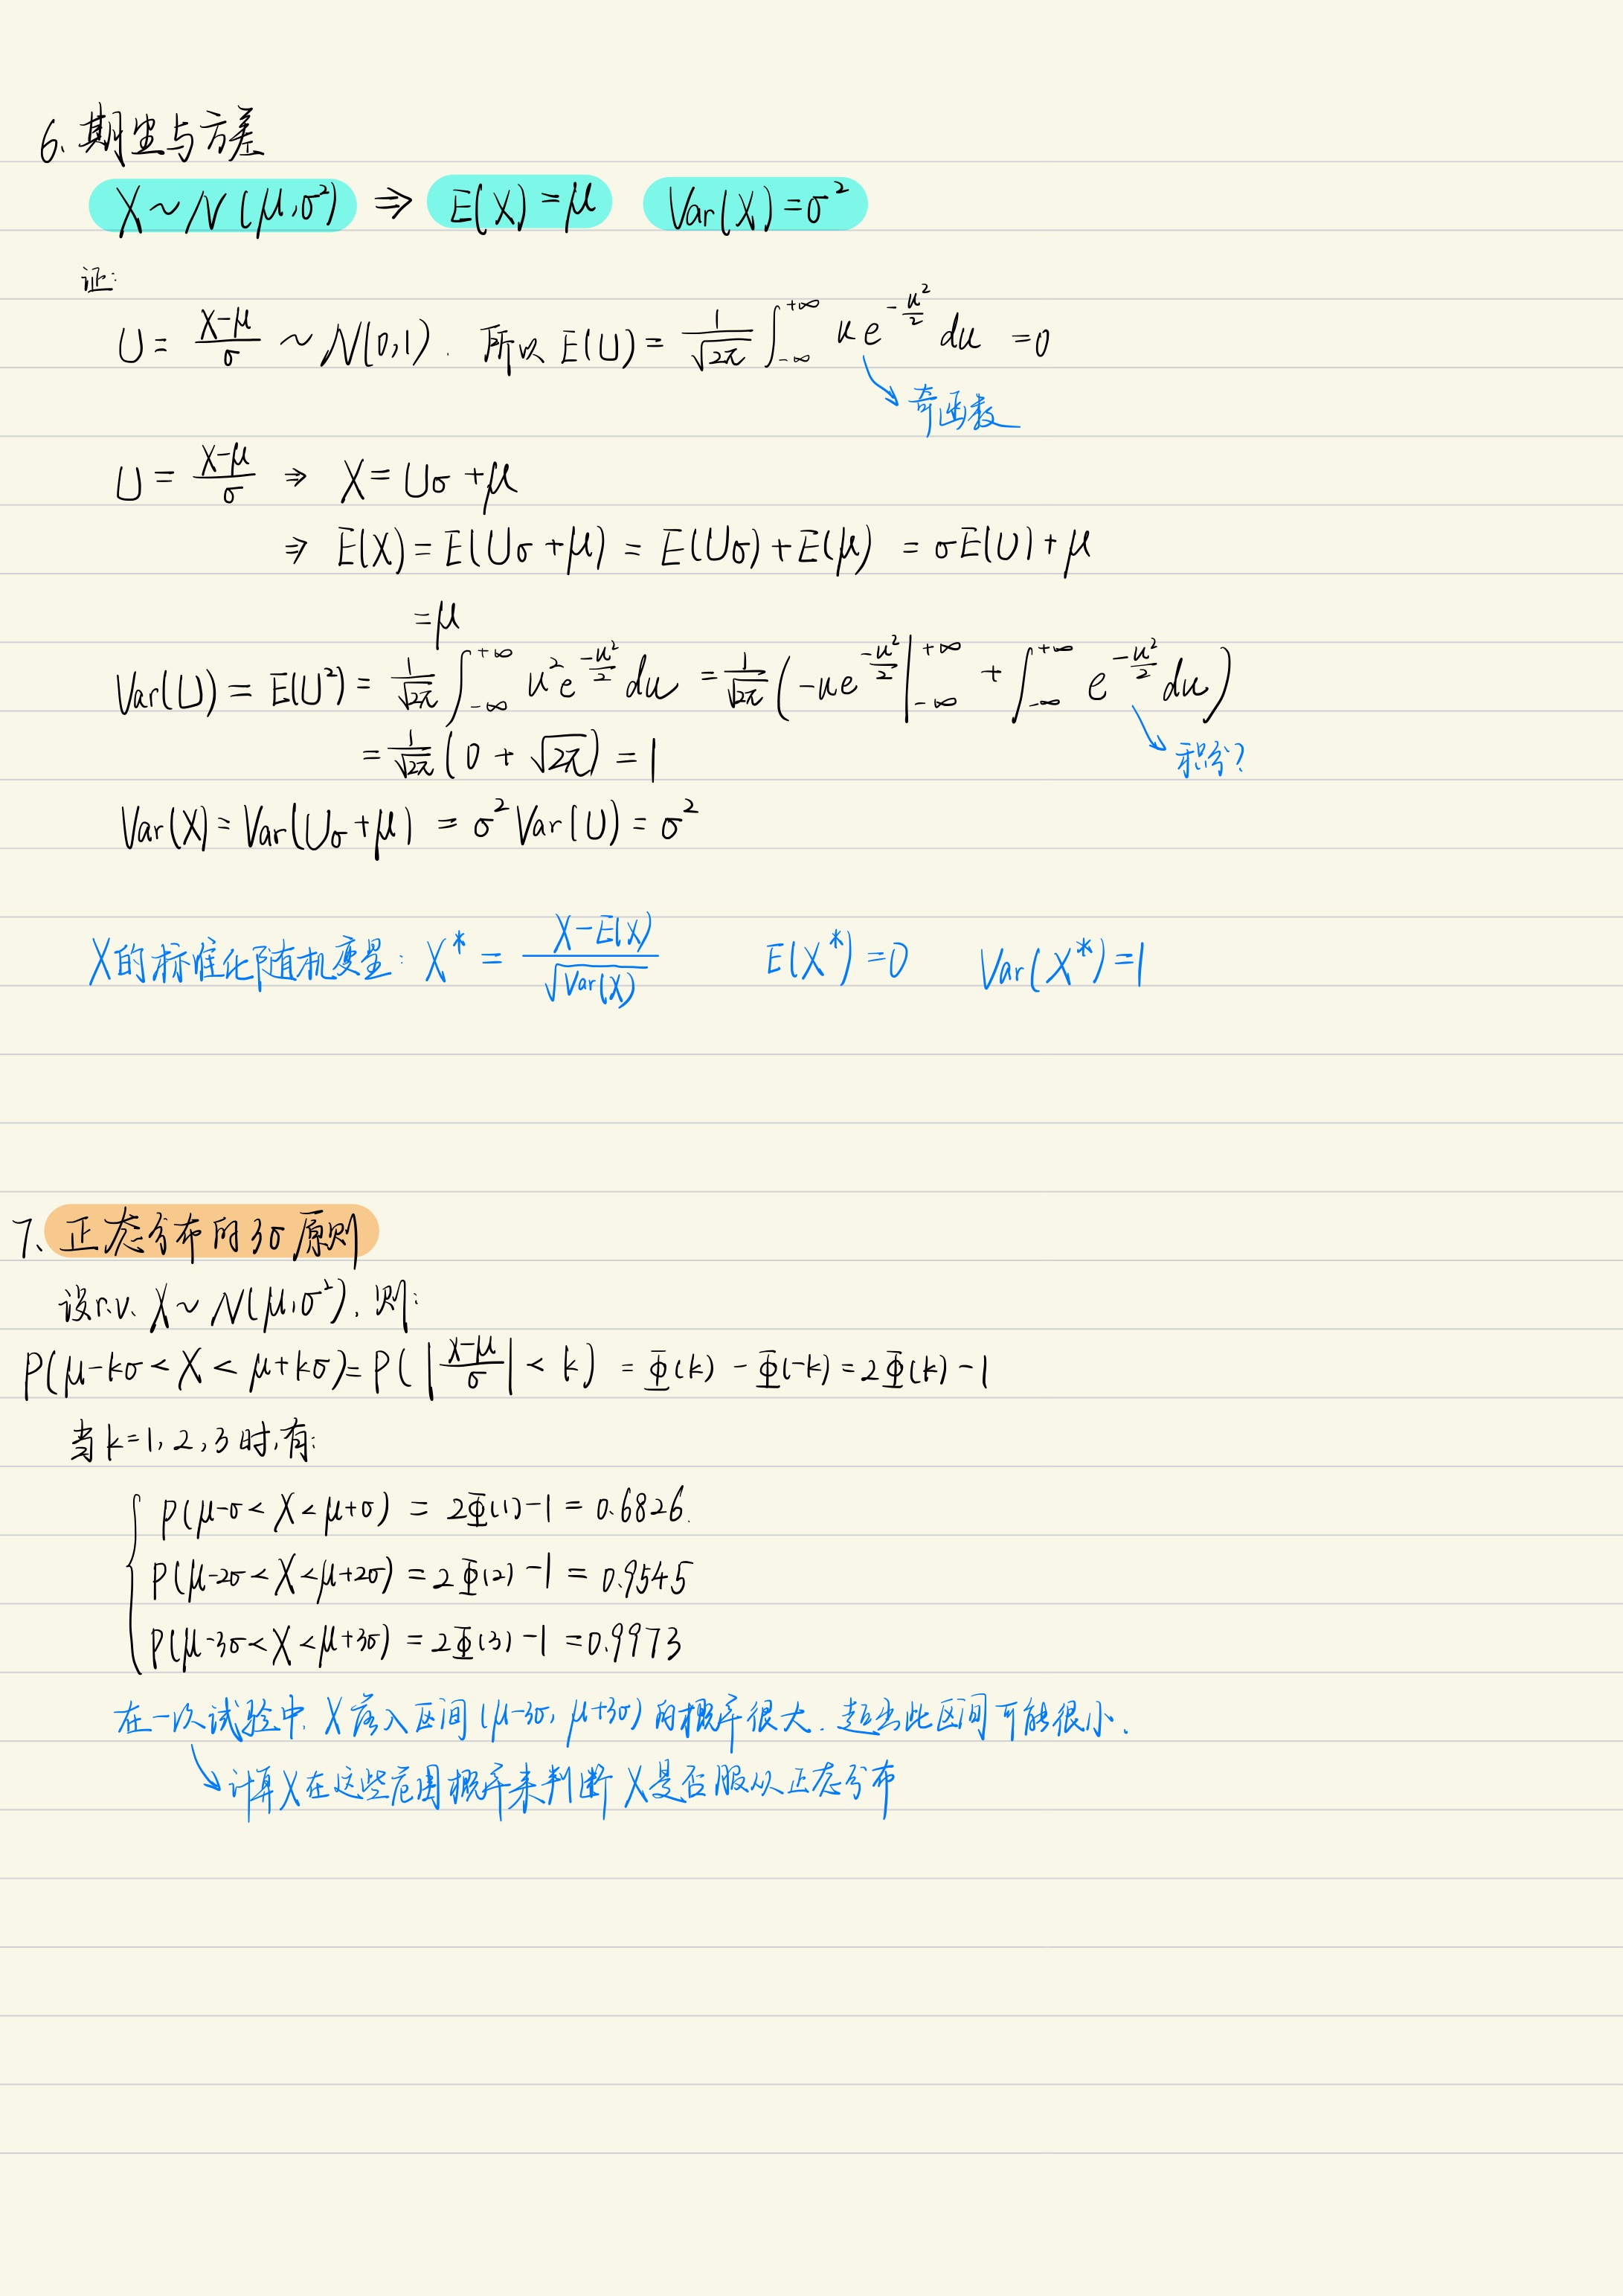 6、期望与方差
X ~ N(μ,σ²) ⇒ E(X) = μ Var(X) = σ²
证:
U = (X-μ)/σ ~ N(0,1). 所以 E(U) = 1/√(2π) ∫_{-∞}^{+∞} u e^{-u²/2} du = 0
奇函数
U = (X-μ)/σ ⇒ X = Uσ + μ
⇒ E(X) = E(Uσ + μ) = E(Uσ) + E(μ) = σE(U) + μ
= μ
Var(U) = E(U²) = 1/√(2π) ∫_{-∞}^{+∞} u² e^{-u²/2} du = 1/√(2π) (-u e^{-u²/2} |_{-∞}^{+∞} + ∫_{-∞}^{+∞} e^{-u²/2} du)
= 1/√(2π) (0 + √(2π)) = 1
积分?
Var(X) = Var(Uσ + μ) = σ² Var(U) = σ²
X的标准化随机变量: X* = (X-E(X))/√(Var(X)) E(X*) = 0 Var(X*) = 1
7、正态分布的3σ原则
设r.v. X ~ N(μ,σ²), 则:
P(μ-kσ < X < μ+kσ) = P(|(X-μ)/σ| < k) = Φ(k) - Φ(-k) = 2Φ(k) - 1
当k=1, 2, 3时,有:
P(μ-σ < X < μ+σ) = 2Φ(1) - 1 = 0.6826.
P(μ-2σ < X < μ+2σ) = 2Φ(2) - 1 = 0.9545
P(μ-3σ < X < μ+3σ) = 2Φ(3) - 1 = 0.9973
在一次试验中, X落入区间(μ-3σ, μ+3σ)的概率很大, 超出此区间可能很小.
计算X在这些范围概率来判断X是否服从正态分布